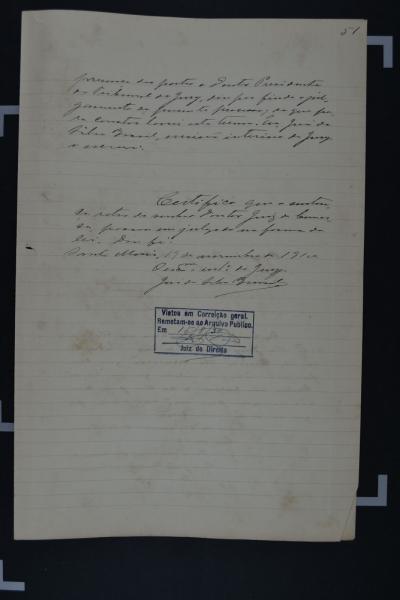 51
presença das partes o Doutor Presidente
do Tribunal do Jury, deu por findo o jul-
gamento do presente processo, do que pa-
ra constar lavrei este termo. Eu, José da
Silva Brasil, escrivão interino do Jury
o escrevi.
Certifico que a senten-
ça retro do Doutor Juiz de Comar-
ca, passou em julgado na forma da
lei. Dou fé.
Santa Maria, 19 de novembro de 191
O escrivão int.º do Jury.
José da Silva Brasil
Vistos em Correição geral.
Remetam-se ao Arquivo Publico.
Em
Juiz de Direito